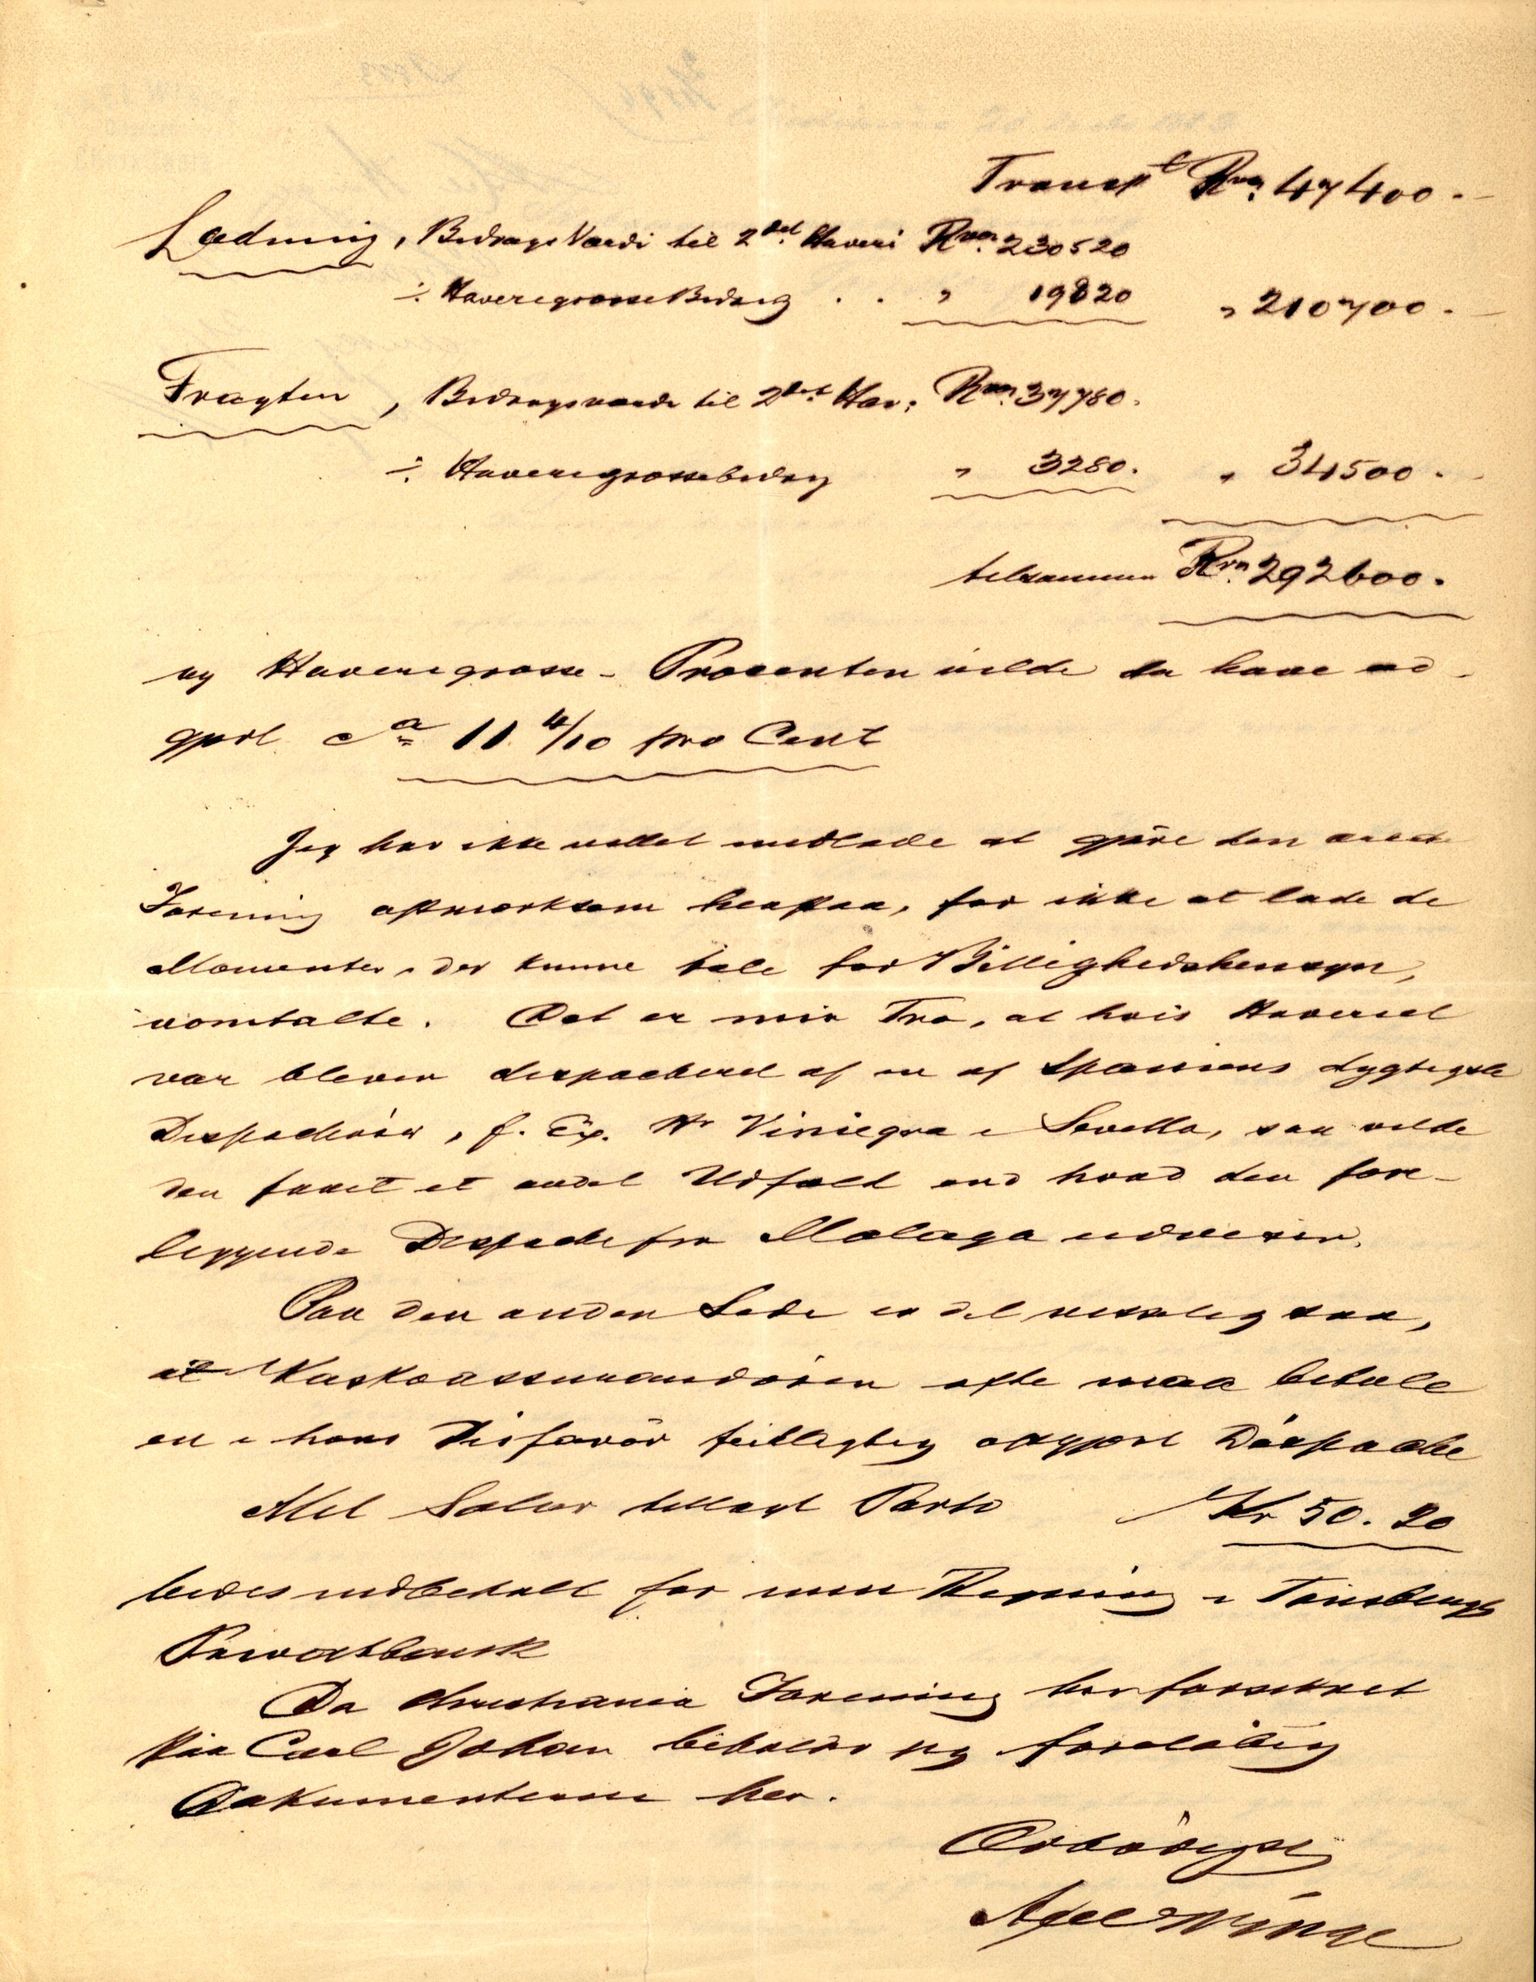 Transpt Rvn 47400.-
Ladning, BidragsVærdi til 2det Haveri Rvn. 230520
÷ HaverigrosseBidrag . . " 19820 " 210700.-
Fragten, Bidragsværdi til 2det Hav: Rvn. 37780.
÷ Haverigrossebidrag " 3280. " 34500.-
tilsammen Rvn. 292600.
og Haverigrosse-Procenten vilde da have ud-
gjort ca 11 4/10 pro Cent
Jeg har ikke villet undlade at gjöre den ærede
Forening opmærksom herpaa, for ikke at lade de
Momenter, der kunne tale for Billighedshensyn,
uomtalte. Det er min Tro, at hvis Havariet
var bleven despacheret af en af Spaniens dygtigste
Despachörer, f. Ex. Hr Viniegra i Sevilla, saa vilde
den faaet et andet Udfald end hvad den fore-
liggende Despache fra Malaga udviser.
Paa den anden Side er det visselig saa,
at Kaskoassurandören ofte maa betale
en i hans Disfavör feilagtig opgjort Despache
Mit Salær tillagt Porto Kr 50.20
bedes indbetalt for min Regning i Tönsbergs
Privatbank
Da Christiania Forening har forsikret
paa Carl Johan beholder jeg foreløbig
Dokumenterne her.
Ærbödigst
Axel Winge